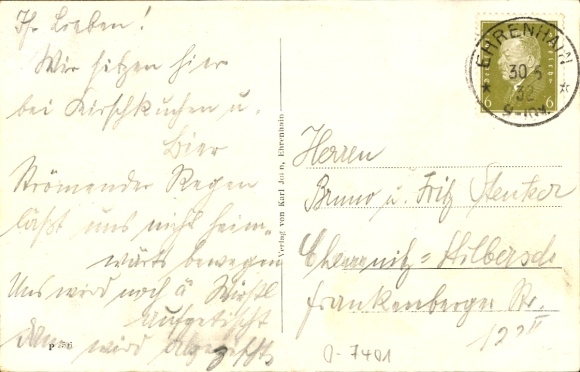 Ihr Lieben!
Wir sitzen hier
bei Kirschkuchen u.
Bier
Strömender Regen
läßt uns nicht heim-
wärts bewegen
Uns wird noch a Wirstl
aufgetischt
Dann wird abgezischt.
P 256
Verlag von Karl Jörn, Ehrenhain
EHRENHAIN
30 5
32
6 6
Herren
Bruno u. Fritz
Chemnitz=Hilbersd.
Frankenberger Str.
122 II
0-7401